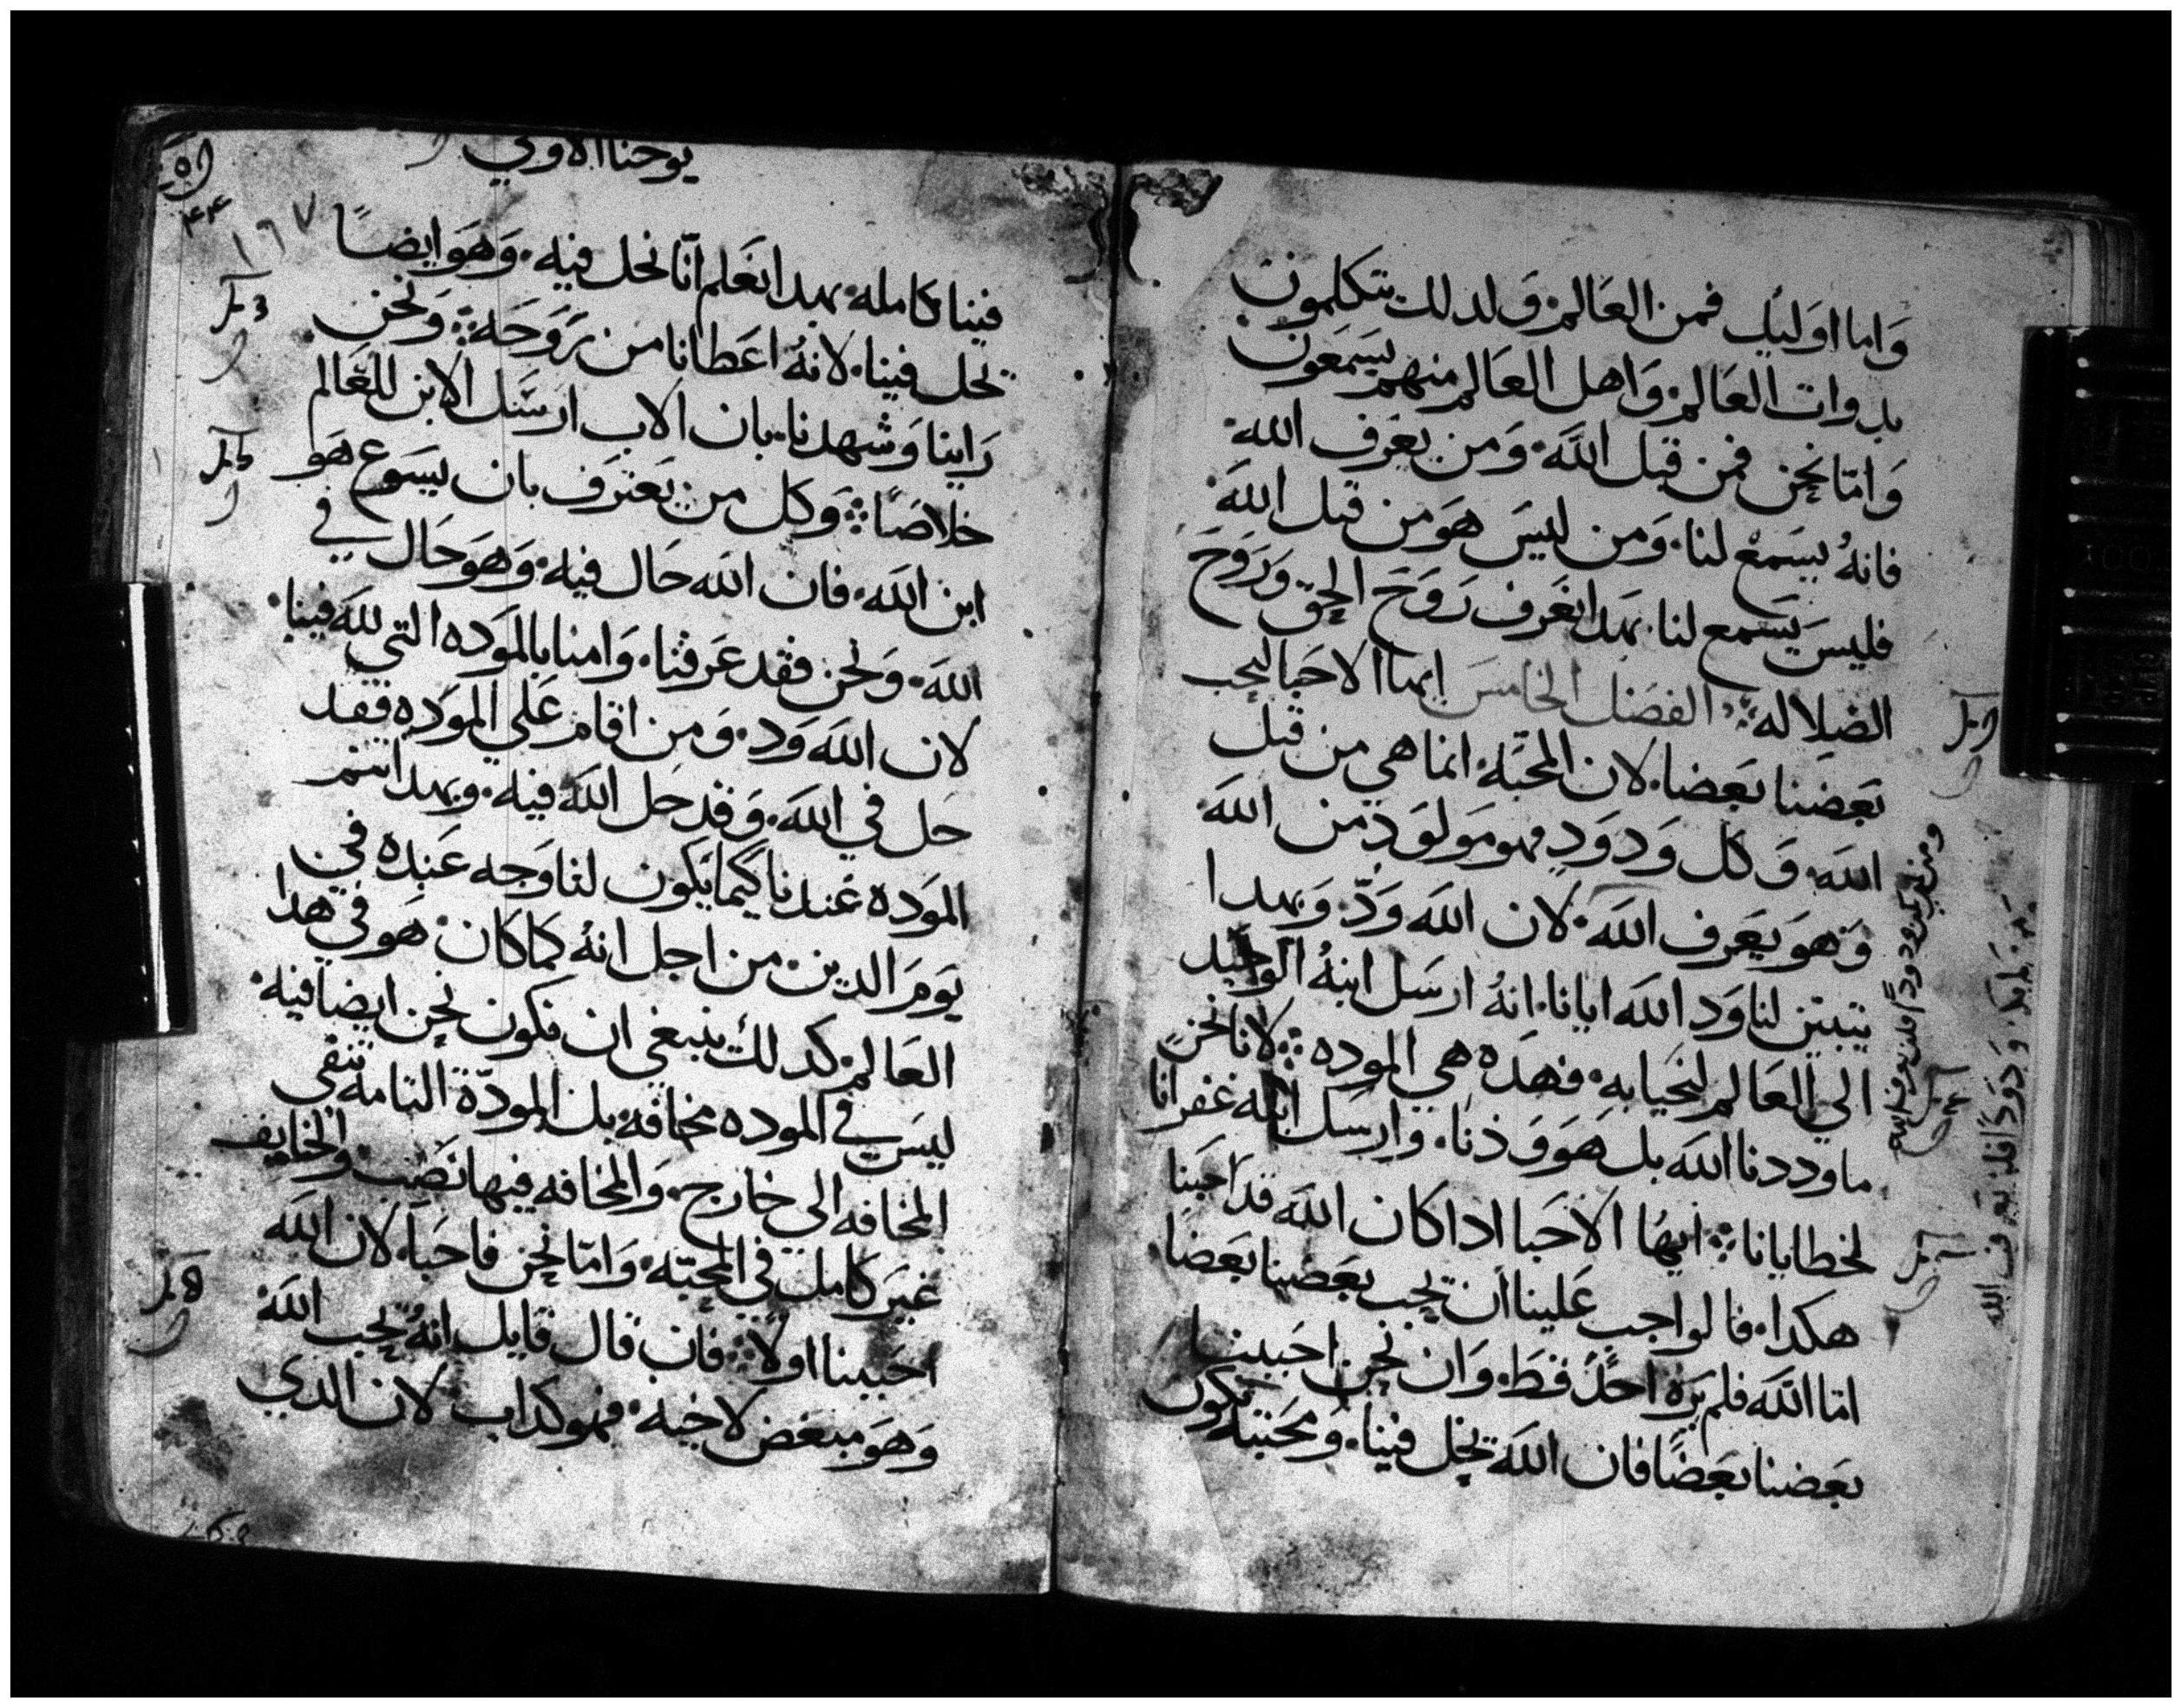 واما اوليك فمن العالم ولدلك يتكلمون
بدوات العالم واهل العالم منهم يسمعون
واما نحن فمن قبل الله ومن يعرف الله
فانه يسمع لنا ومن ليس هو من قبل الله
فليس يسمع لنا بهدا نعرف روح الحق وروح
الضلاله الفصل الخامس ايها الاحبا ليحب
بعضنا بعضا لان المحبه انما هي من قبل
الله وكل ودود فهو مولود من الله
وهو يعرف الله لان الله ود وبهدا
يتبين لنا ود الله ايانا انه ارسل ابنه الوحيد
الي العالم لنحيا به فهده هي الموده لانا نحن
ما وددنا الله بل هو ودنا وارسل ابنه غفرانا
لخطايانا ايها الاحبا ادا كان الله قد احبنا
هكدا فالواجب علينا ان نحب بعضنا بعضا
اما الله فلم يره احد قط وان نحن احببنا
بعضنا بعضا فان الله يحل فينا ومحبته تكون
ودودا فلن يعرف الله
يوحنا الاولي
١٩٧
فينا كامله بهدا نعلم انا نحل فيه وهو ايضا
يحل فينا لانه اعطانا من روحه ونحن
راينا وشهدنا بان الاب ارسل الابن للعالم
خلاصا وكل من يعترف بان يسوع هو
ابن الله فان الله حال فيه وهو حال في
الله ونحن فقد عرفنا وامنا بالموده التي لله فينا
لان الله ود ومن اقام علي الموده فقد
حل في الله وقد حل الله فيه وبهدا تتم
الموده عندنا كيما يكون لنا وجه عنده في
يوم الدين من اجل انه كما كان هو في هدا
العالم كدلك ينبغي ان نكون نحن ايضا فيه
ليس في الموده مخافه بل المودة التامه تنفي
المخافه الى خارج والمخافه فيها نصب والخايف
غير كامل في المحبه واما نحن فاحبا لان الله
احببنا اولا فان قال قايل انه يحب الله
وهو مبغض لاخيه فهو كداب لان الدي